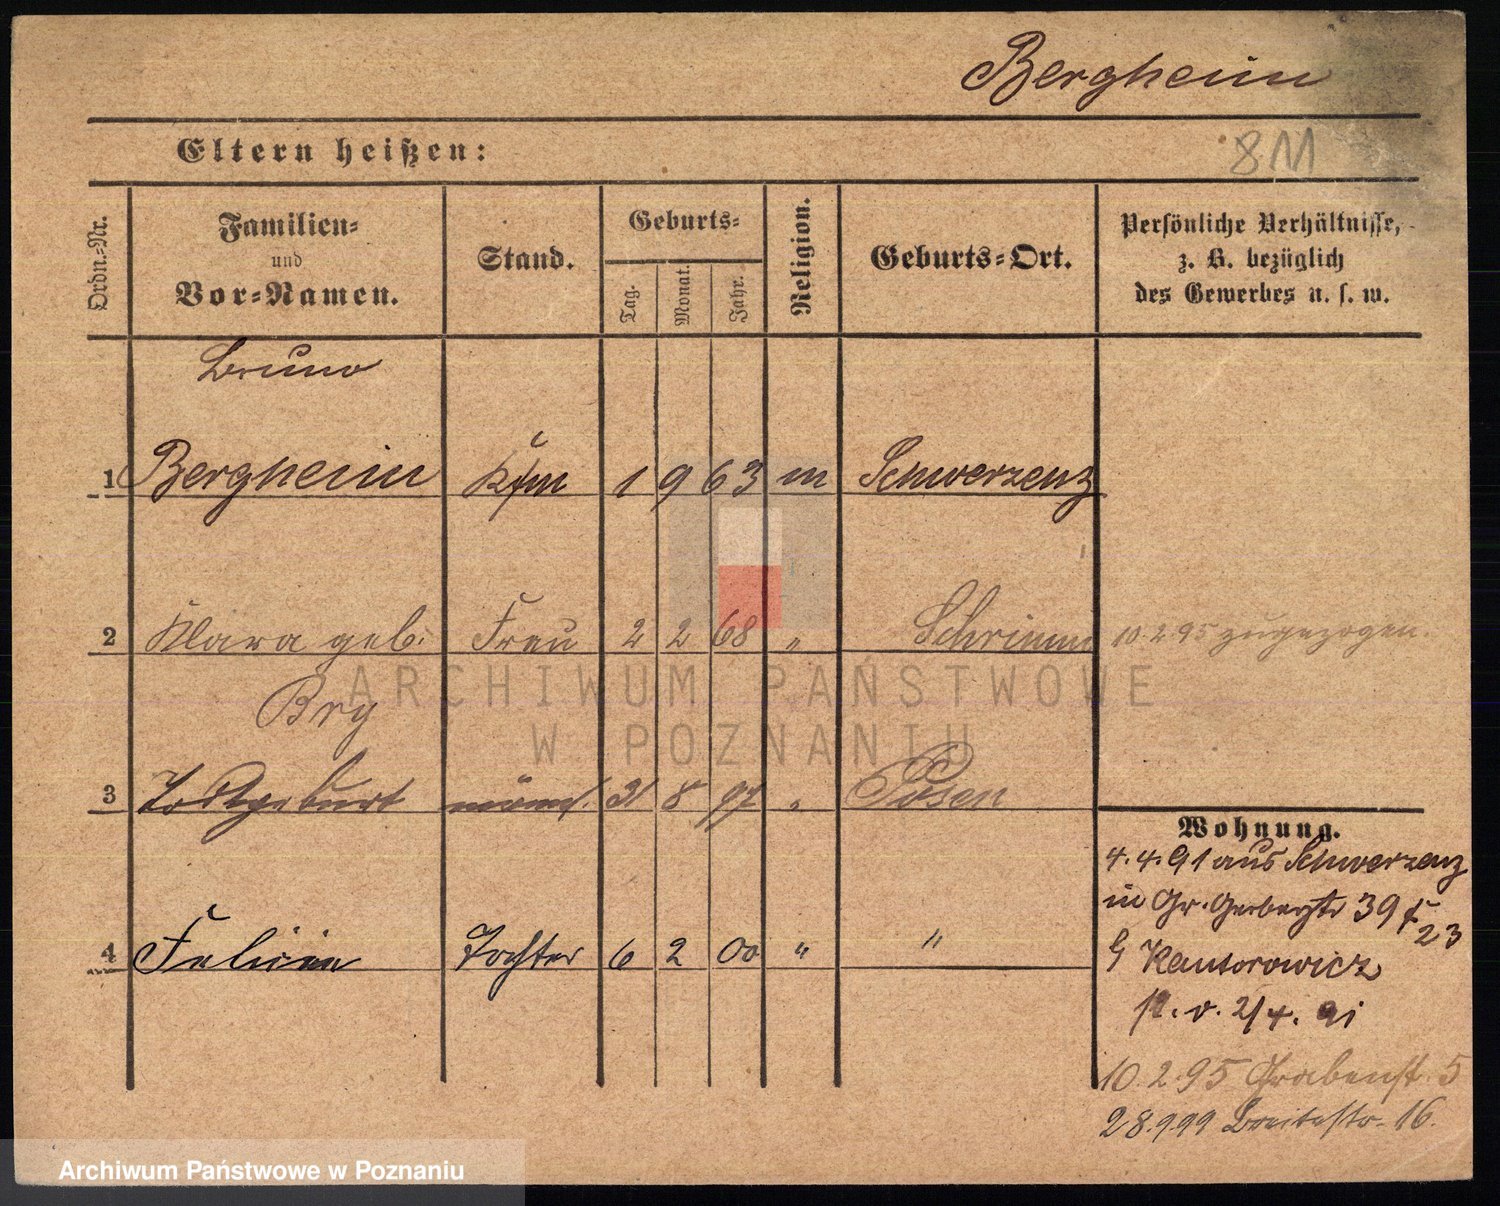 Bergheim
Eltern heißen:
8 M
Ordn.-Nr.
Familien-
und
Vor-Namen.
Stand.
Geburts-
Tag.
Monat.
Jahr.
Religion.
Geburts-Ort.
Persönliche Verhältnisse,
z. B. bezüglich
des Gewerbes u. s. w.
Bruno
1 Bergheim Kfm 1 9 63 m Schwersenz
2 Klara geb. Frau 2 2 68 " Schrimm 10.2.95 zugezogen.
Bry
3 Todtgeburt männl. 31 8 97 " Posen
Wohnung.
4.4.91 aus Schwersenz
in Gr. Gerberstr 39
23
4 Felicia Tochter 6 2 00 " "
Kantorowicz
v. 2/4. 91
10.2.95 Grabenst. 5
28.9.99 Breitestr. 16.
ARCHIWUM PAŃSTWOWE
W POZNANIU
Archiwum Państwowe w Poznaniu